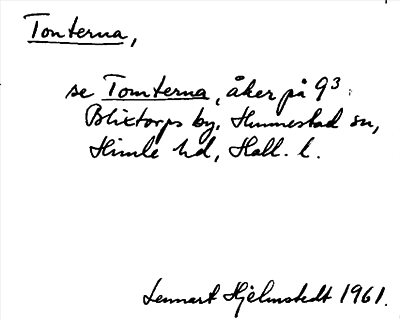 Tonterna,
se Tomterna, åker på 9³
Blixtorps by, Hunnestad sn,
Himle hd, Hall. l.
Lennart Hjelmstedt 1961.